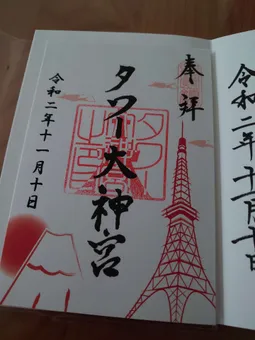 奉拝
タワー大神宮
令和二年十一月十日
令和二年十一月十日